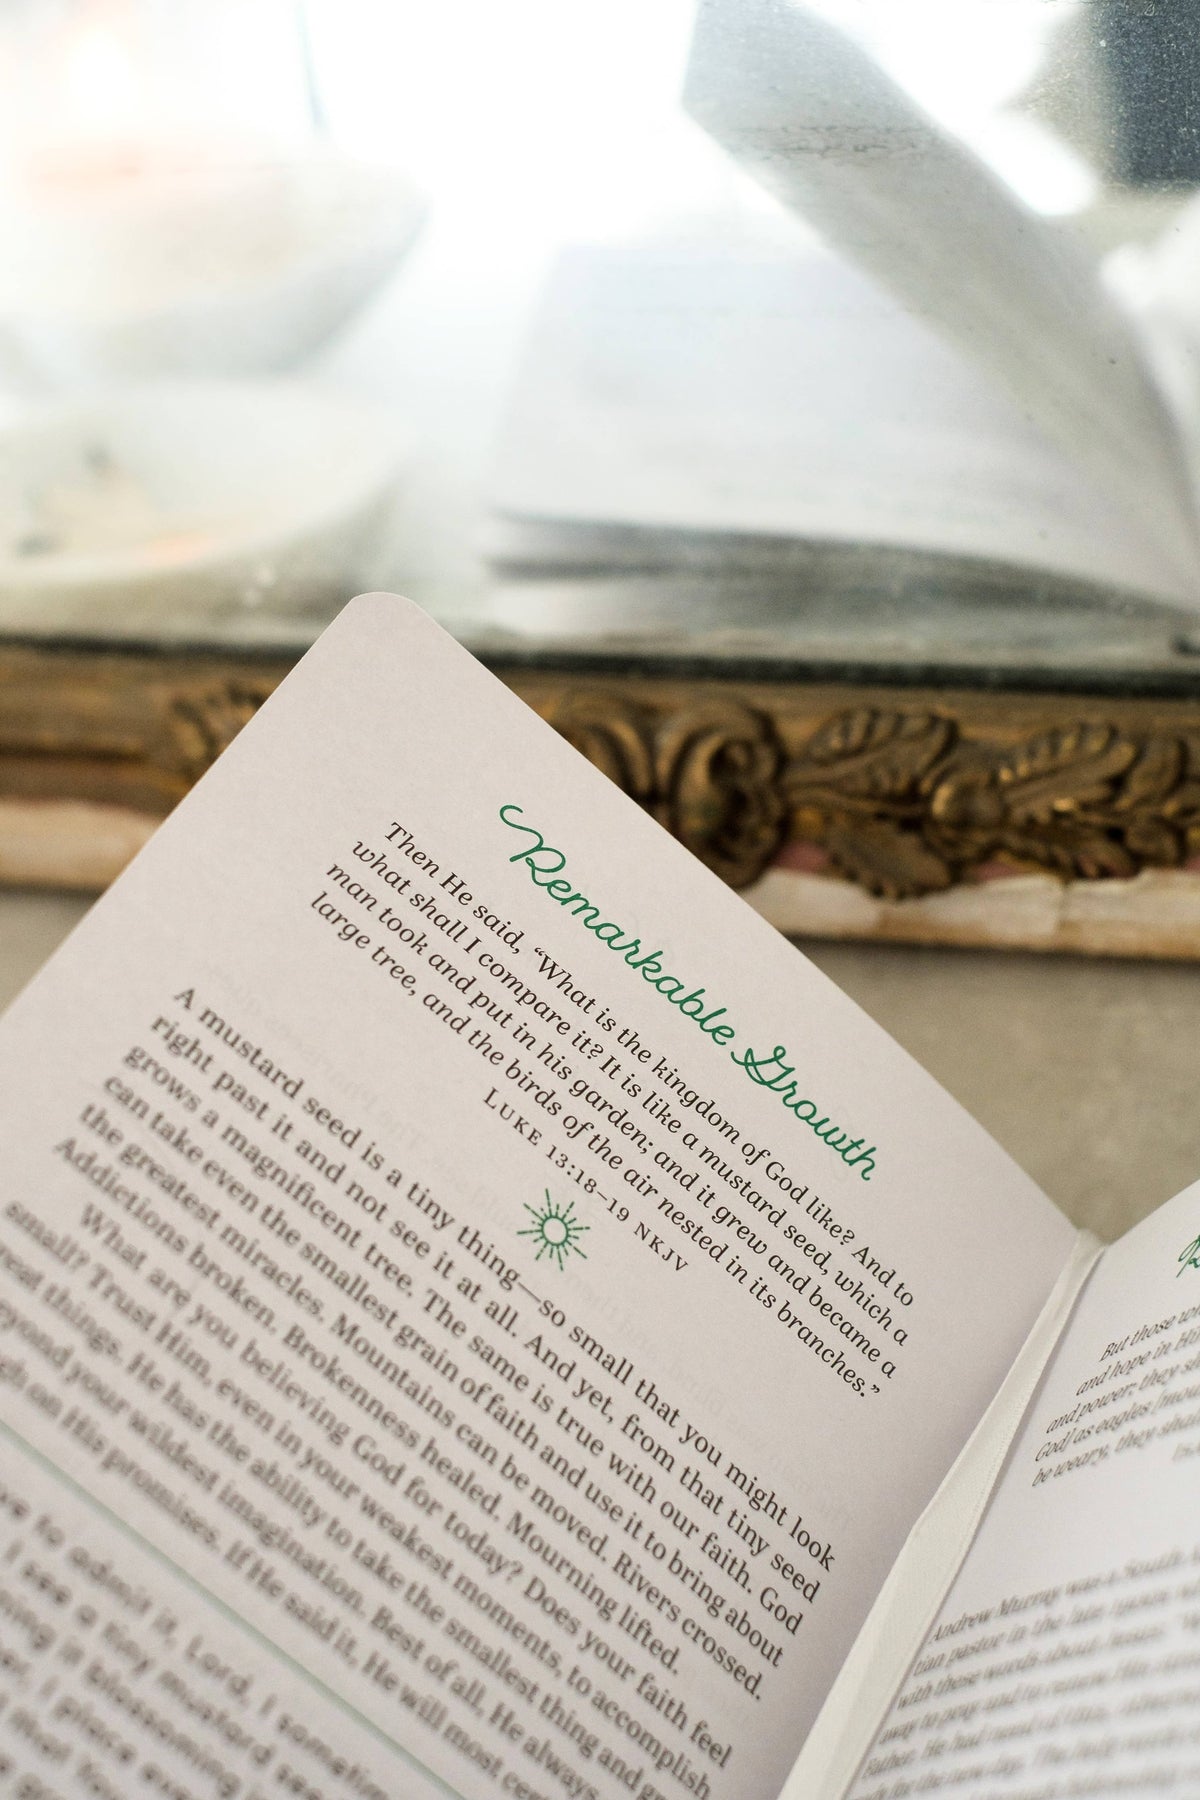 Remarkable Growth
Then He said, “What is the kingdom of God like? And to
what shall I compare it? It is like a mustard seed, which a
man took and put in his garden; and it grew and became a
large tree, and the birds of the air nested in its branches.”
LUKE 13:18–19 NKJV
A mustard seed is a tiny thing—so small that you might look
right past it and not see it at all. And yet, from that tiny seed
grows a magnificent tree. The same is true with our faith. God
can take even the smallest grain of faith and use it to bring about
the greatest miracles. Mountains can be moved. Rivers crossed.
Addictions broken. Brokenness healed. Mourning lifted.
What are you believing God for today? Does your faith feel
small? Trust Him, even in your weakest moments, to accomplish
things. He has the ability to take the smallest thing and
your wildest imagination. Best of all, He always
on His promises. If He said it, He will most
to admit it, Lord, I
I see a tiny mustard
blossoming
I place
But those
and hope in
and power; they
God] as eagles
be weary, they
Andrew Murray was a South
tian pastor in the late
with these words about Jesus:
away to pray and to renew His
Father. He had need of this,
for the new day. The